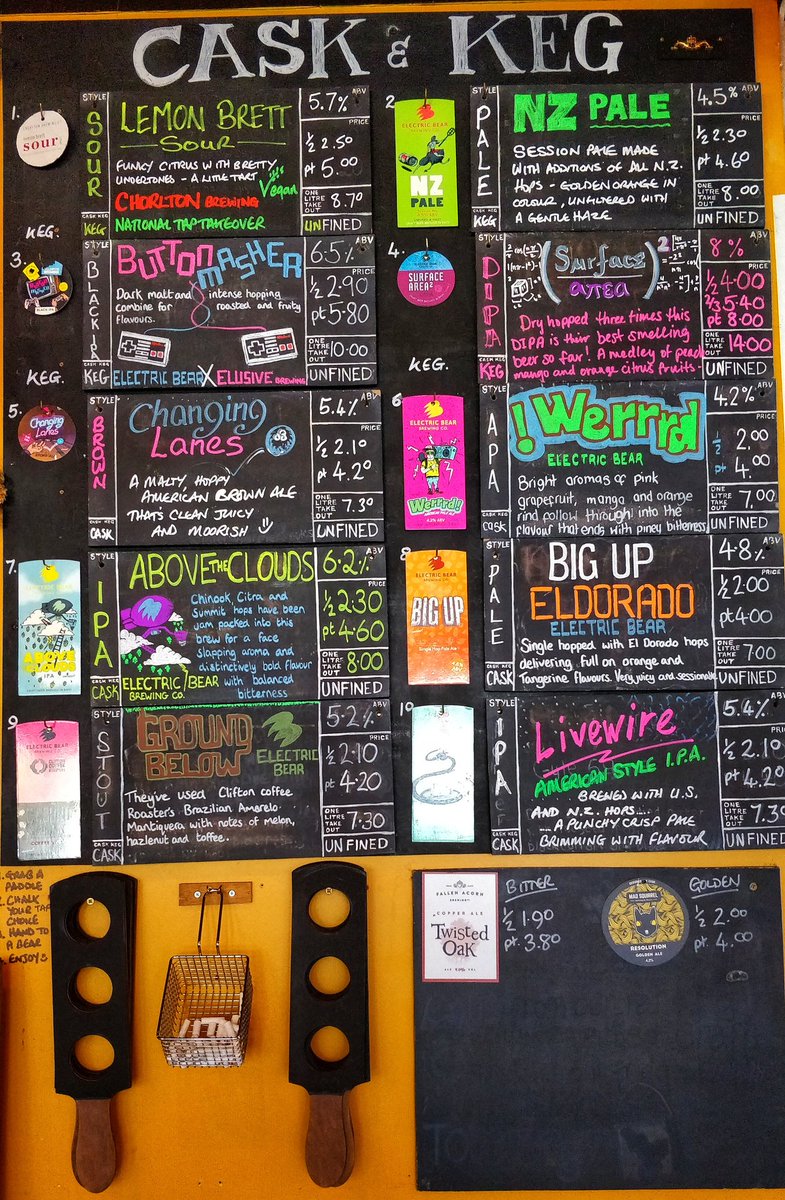 CASK & KEG
1.
sour
KEG.
STYLE
SOUR
CASK KEG
KEG
LEMON BRETT
SOUR
FUNKY CITRUS WITH BRETTY
UNDERTONES - A LITTLE TART
Vegan
CHORLTON BREWING
NATIONAL TAP TAKEOVER
5.7% ABV
PRICE
½ 2.50
pt 5.00
ONE LITRE TAKE OUT 8.70
UNFINED
2
ELECTRIC BEAR
BREWING CO.
NZ
PALE
STYLE
PALE
CASK KEG
KEG
NZ PALE
SESSION PALE MADE
WITH ADDITIONS OF ALL N.Z.
HOPS - GOLDEN ORANGE IN
COLOUR, UNFILTERED WITH
A GENTLE HAZE
4.5% ABV
PRICE
½ 2.30
pt 4.60
ONE LITRE TAKE OUT 8.00
UNFINED
3.
KEG.
STYLE
BLACK IPA
CASK KEG
KEG
BUTTON MASHER
Dark malt and intense hopping
combine for roasted and fruity
flavours.
ELECTRIC BEAR X ELUSIVE BREWING
6.5% ABV
PRICE
½ 2.90
pt 5.80
ONE LITRE TAKE OUT 10.00
UNFINED
4.
SURFACE
AREA²
KEG.
STYLE
DIPA
CASK KEG
KEG
(Surface area)²
Dry hopped three times this
DIPA is their best smelling
beer so far! A medley of peach
mango and orange citrus fruits -
8% ABV
PRICE
½ 4.00
⅔ 5.40
pt 8.00
ONE LITRE TAKE OUT 14.00
UNFINED
5.
Changing
Lanes
STYLE
BROWN
CASK KEG
CASK
Changing
Lanes
A MALTY, HOPPY
AMERICAN BROWN ALE
THAT'S CLEAN JUICY
AND MOORISH
5.4% ABV
PRICE
½ 2.10
pt 4.20
ONE LITRE TAKE OUT 7.30
UNFINED
6
ELECTRIC BEAR
BREWING CO.
Werrrd!
4.2% ABV
STYLE
APA
CASK KEG
CASK
!Werrrd
ELECTRIC BEAR
Bright aromas of pink
grapefruit, mango and orange
rind follow through into the
flavour that ends with piney bitterness
4.2% ABV
PRICE
½ 2.00
pt 4.00
ONE LITRE TAKE OUT 7.00
UNFINED
7.
ABOVE
THE
CLOUDS
IPA
STYLE
IPA
CASK KEG
CASK
ABOVE THE CLOUDS
Chinook, Citra and
Summit hops have been
jam packed into this
brew for a face
slapping aroma and
distinctively bold flavour
with balanced
bitterness
ELECTRIC BEAR
BREWING CO.
6.2% ABV
PRICE
½ 2.30
pt 4.60
ONE LITRE TAKE OUT 8.00
UNFINED
8
ELECTRIC BEAR
BREWING CO.
BIG UP
Single Hop Pale Ale
STYLE
PALE
CASK KEG
CASK
BIG UP
ELDORADO
ELECTRIC BEAR
Single hopped with El Dorado hops
delivering full on orange and
Tangerine flavours. Very juicy and sessionable
4.8% ABV
PRICE
½ 2.00
pt 4.00
ONE LITRE TAKE OUT 7.00
UNFINED
9
ELECTRIC BEAR
BREWING CO.
STYLE
STOUT
CASK KEG
CASK
GROUND
BELOW
ELECTRIC
BEAR
They've used Clifton coffee
Roasters Brazilian Amarelo
Mantiquera with notes of melon,
hazlenut and toffee.
5.2% ABV
PRICE
½ 2.10
pt 4.20
ONE LITRE TAKE OUT 7.30
UNFINED
10
STYLE
IPA
CASK KEG
CASK
Livewire
AMERICAN STYLE I.P.A.
BREWED WITH U.S.
AND N.Z. HOPS....
...A PUNCHY CRISP PALE
BRIMMING WITH FLAVOUR
5.4% ABV
PRICE
½ 2.10
pt 4.20
ONE LITRE TAKE OUT 7.30
UNFINED
1. GRAB A
PADDLE
2. CHALK
YOUR TAP
CHOICE
3. HAND TO
A BEAR
4. ENJOY
FALLEN ACORN
BREWING CO
"COPPER ALE"
Twisted
Oak
BITTER
½ 1.90
pt. 3.80
MAD SQUIRREL
RESOLUTION
GOLDEN ALE
4.2%
GOLDEN
½ 2.00
pt. 4.00